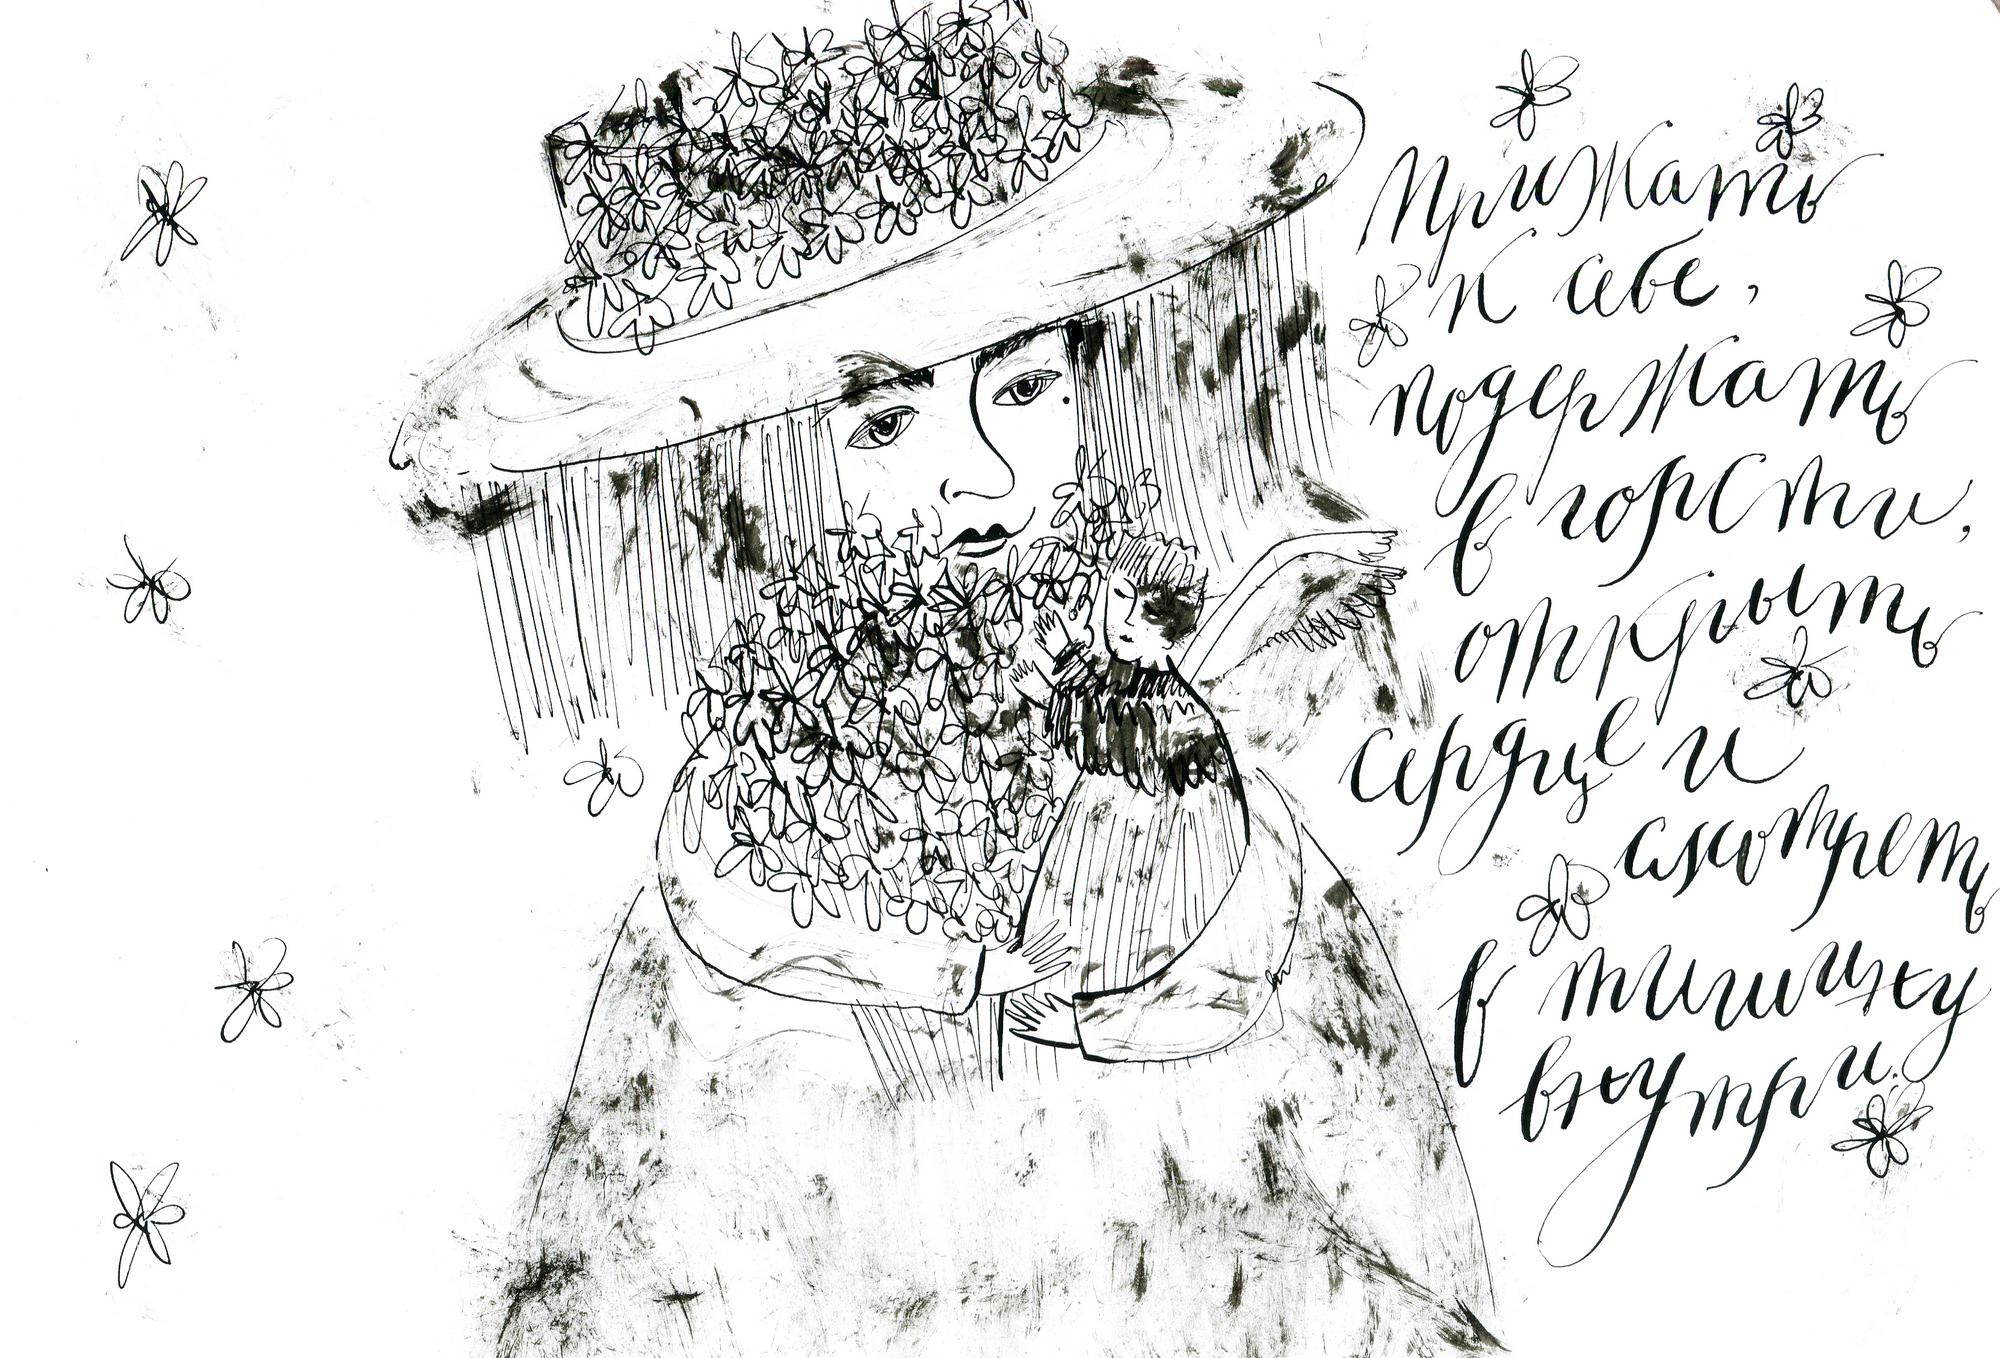 Прижать
к себе,
подержать
в горсти,
открыть
сердце и
смотреть
в тишину
внутри.